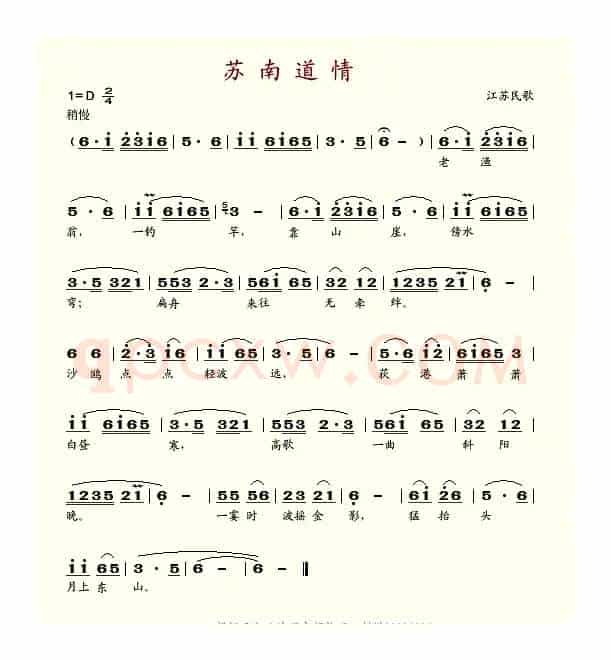 苏南道情
1=D 2/4
江苏民歌
稍慢
(6·i 2316 | 5·6 | ii 6165 | 3·5 | 6 – ) | 6·i 2316 |
老 渔
5·6 | ii 6165 | 53 – | 6·i 2316 | 5·6 | ii 6165 |
翁, 一钓 竿, 靠 山 崖, 傍水
3·5 321 | 553 2·3 | 561 65 | 32 12 | 1235 21 | 6 – |
弯; 扁舟 来往 无 牵 绊。
6 6 | 2·3 i6 | ii 65 | 3·5 | 6 – | 5·6 i2 | 6165 3 |
沙 鸥 点 点 轻波 远, 荻 港 萧 萧
ii 6165 | 3·5 321 | 553 2·3 | 561 65 | 32 12 |
白昼 寒, 高歌 一曲 斜 阳
1235 21 | 6 – | 55 56 | 23 35 | 6 – | 6i 26 | 5·6 |
晚。 一霎 时 波摇 金 影, 猛 抬 头
ii 65 | 3·5 | 6 – | 6 – ‖
月上 东 山。
qpcxw.COM